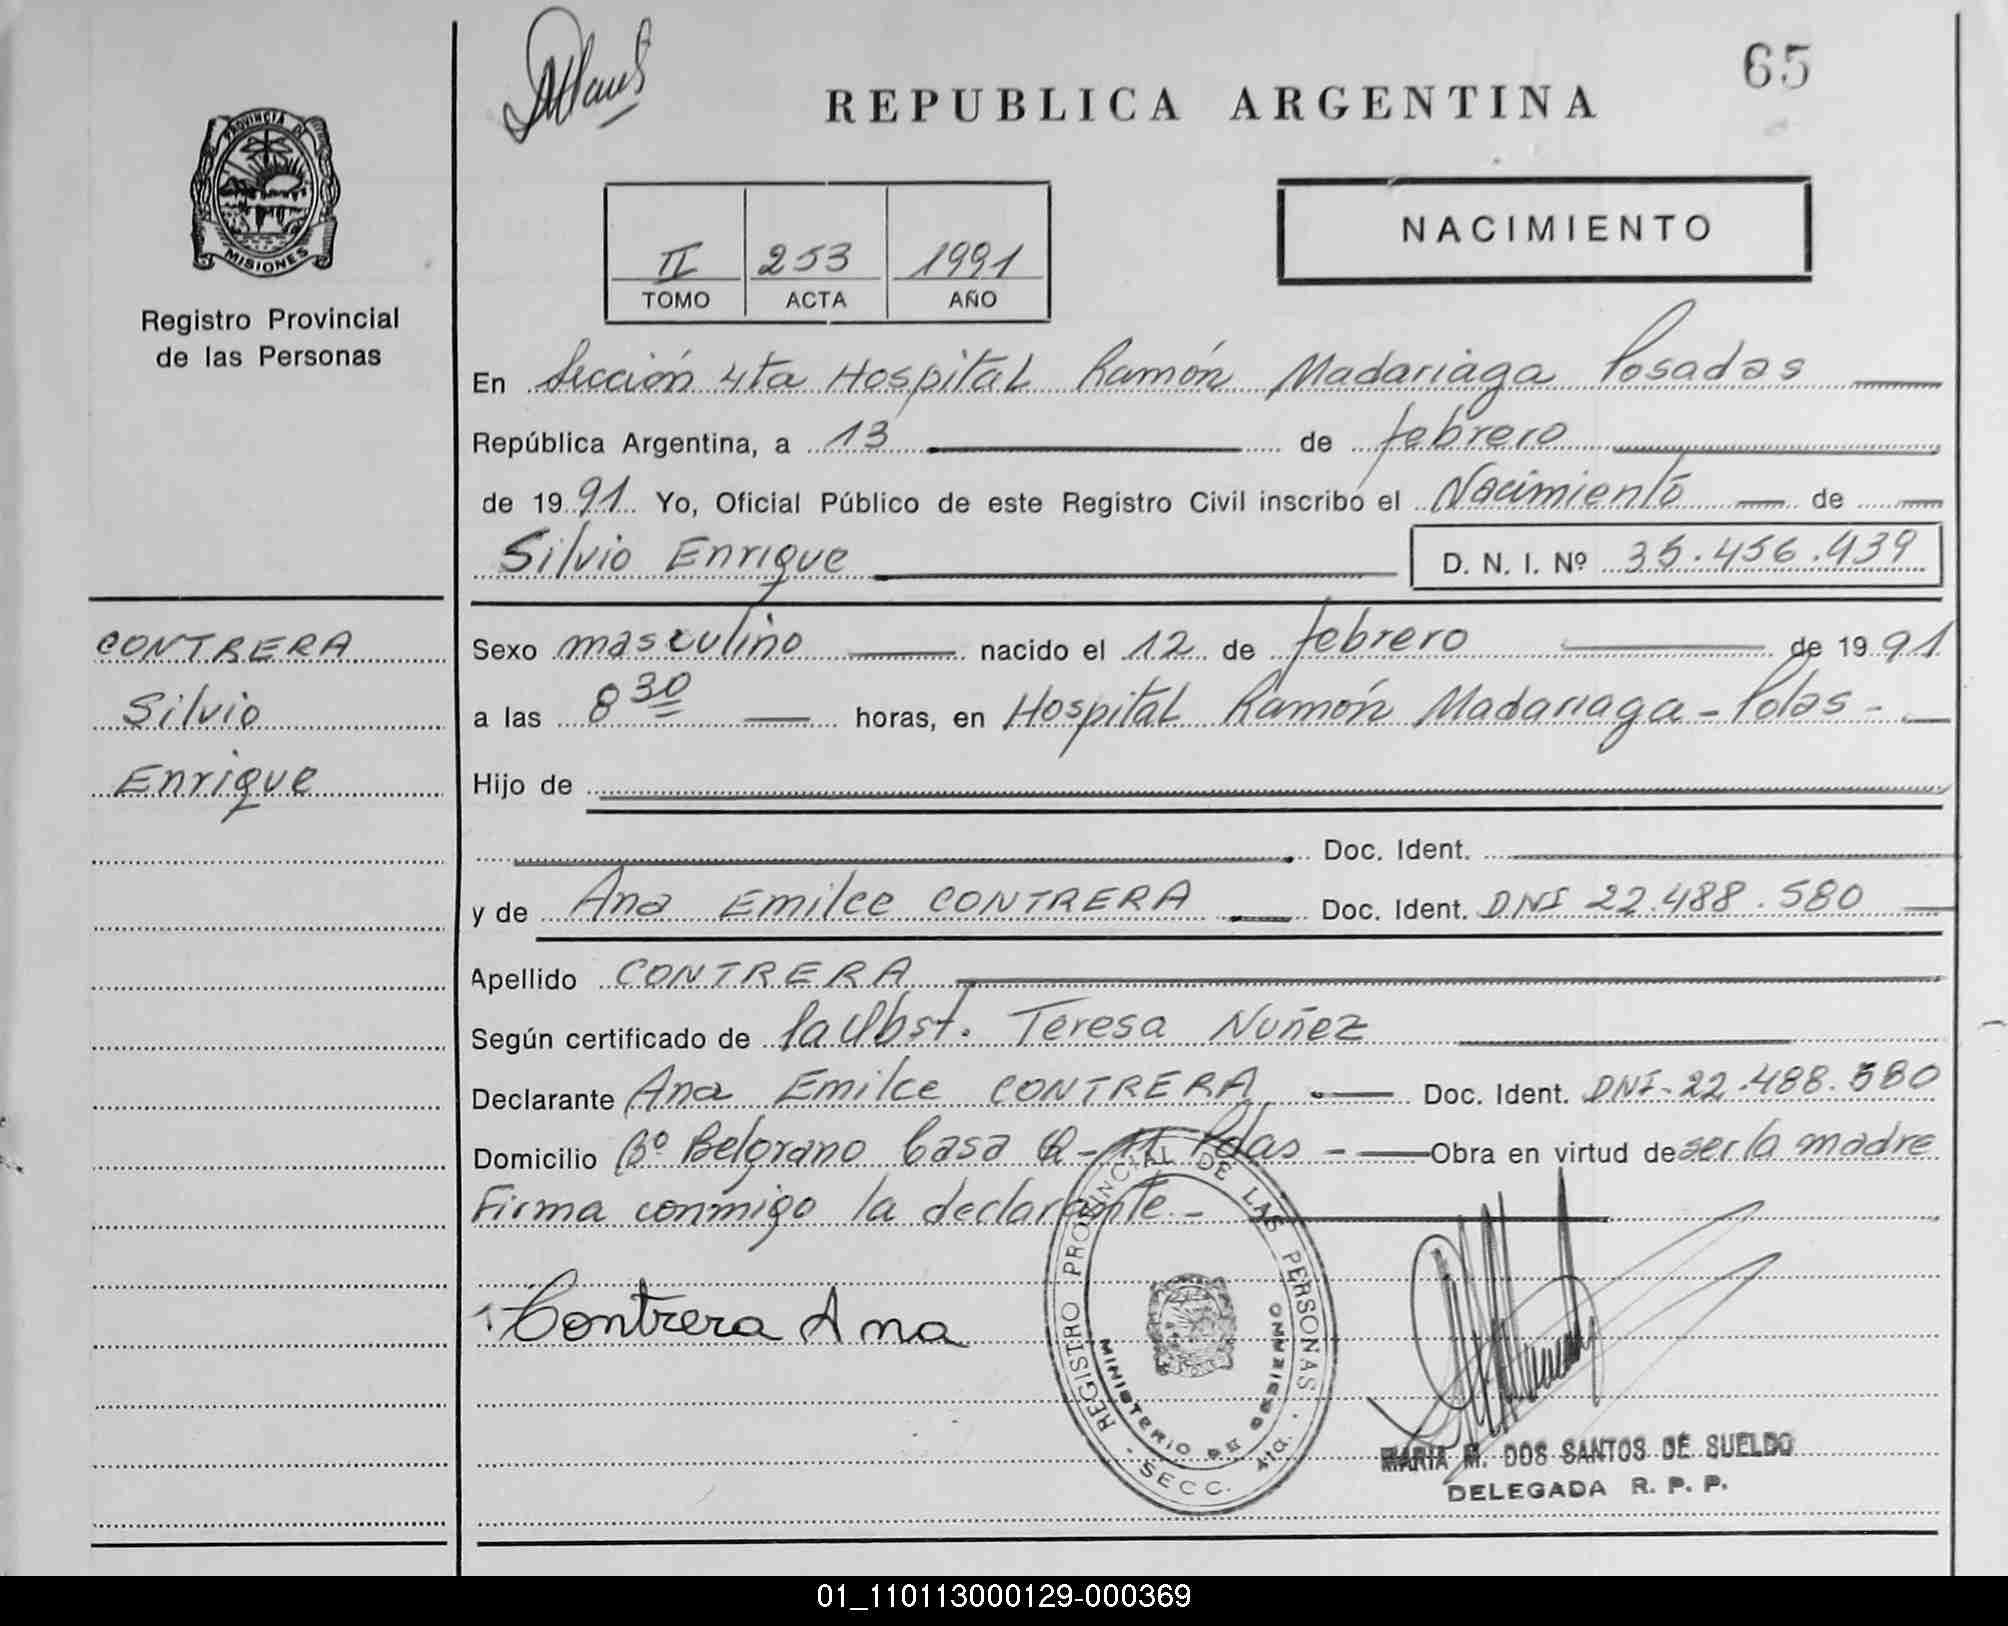 65
REPUBLICA ARGENTINA
PROVINCIA DE
MISIONES
Registro Provincial
de las Personas
NACIMIENTO
II 253 1991
TOMO ACTA AÑO
En Sección 4ta Hospital Ramón Madariaga Posadas
República Argentina, a 13 de febrero
de 1991 Yo, Oficial Público de este Registro Civil inscribo el Nacimiento de
Silvio Enrique D. N. I. Nº 35.456.939
CONTRERA
Silvio
Enrique
Sexo masculino nacido el 12 de febrero de 1991
a las 8 30 horas, en Hospital Ramón Madariaga - Pdas -
Hijo de
Doc. Ident.
y de Ana Emilce CONTRERA Doc. Ident. DNI 22.488.580
Apellido CONTRERA
Según certificado de la Obst. Teresa Nuñez
Declarante Ana Emilce CONTRERA Doc. Ident. DNI-22.488.580
Domicilio Bº Belgrano Casa Pdas - Obra en virtud de ser la madre
Firma conmigo la declarante -
Contrera Ana
REGISTRO PROVINCIAL DE LAS PERSONAS
MINISTERIO DE GOBIERNO
SECC. 4ta.
MARIA M. DOS SANTOS DE SUELDO
DELEGADA R. P. P.
01_110113000129-000369